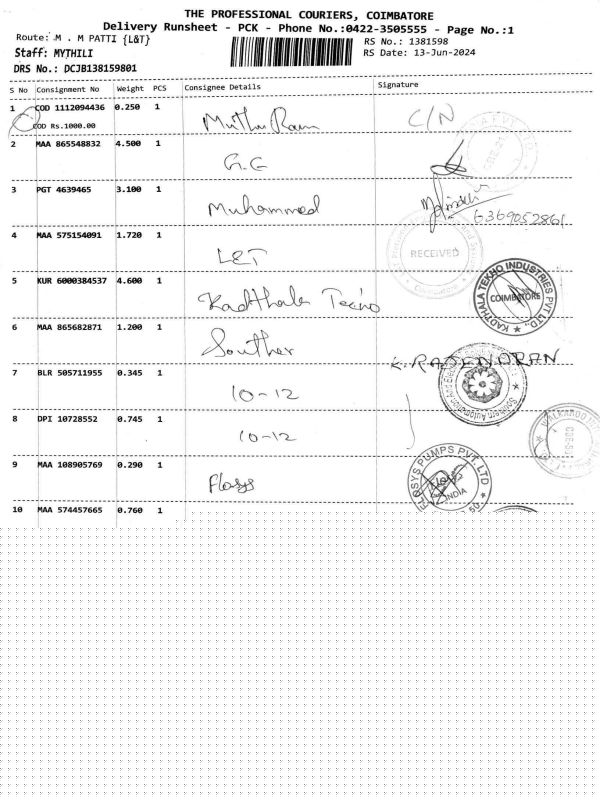 THE PROFESSIONAL COURIERS, COIMBATORE
Delivery Runsheet - PCK - Phone No.:0422-3505555 - Page No.:1
Route: M . M PATTI {L&T}
RS No.: 1381598
Staff: MYTHILI
RS Date: 13-Jun-2024
DRS No.: DCJB138159801
S No Consignment No Weight PCS Consignee Details Signature
1 COD 1112094436 0.250 1 C/N
COD Rs.1000.00
2 MAA 865548832 4.500 1 G.G
3 PGT 4639465 3.100 1 Muhammed
4 MAA 575154091 1.720 1 L&T
RECEIVED
5 KUR 6000384537 4.600 1 Kadthala
KADTHALA TEKHO INDUSTRIES PVT LTD.,
COIMBATORE
6 MAA 865682871 1.200 1 Souther
K. RAJENDRAN
7 BLR 505711955 0.345 1 10-12
8 DPI 10728552 0.745 1 10-12
9 MAA 108905769 0.290 1 Flosys
FLOSYS PUMPS PVT. LTD
INDIA
10 MAA 574457665 0.760 1